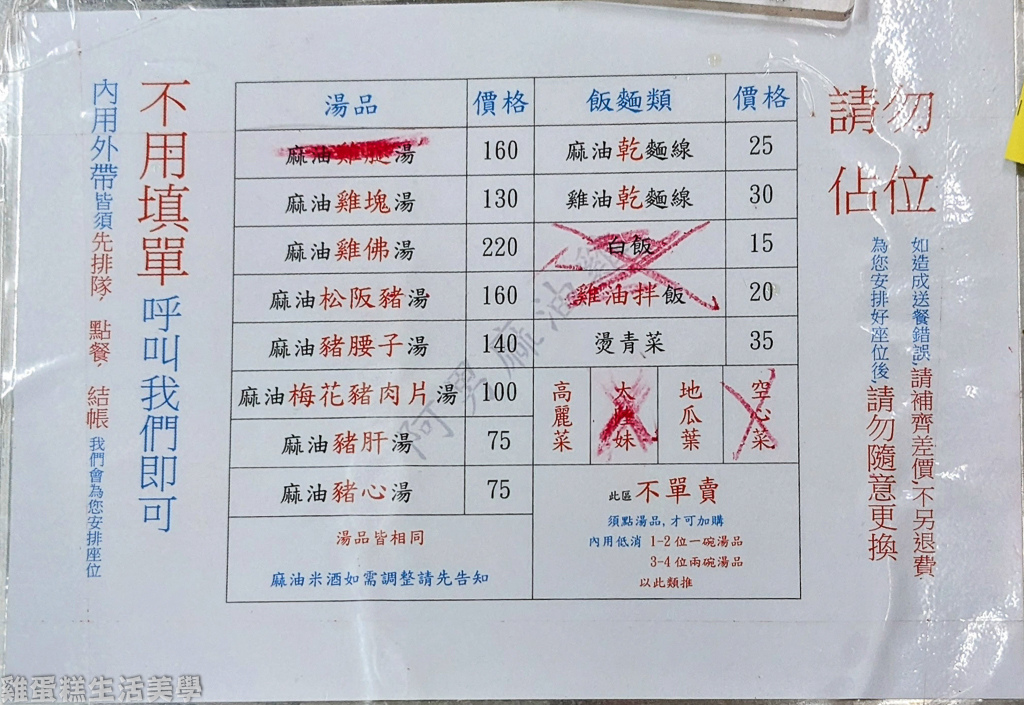 不用填單 呼叫我們即可
內用外帶皆須先排隊, 點餐, 結帳 我們會為您安排座位
湯品 價格
麻油雞腿湯 160
麻油雞塊湯 130
麻油雞佛湯 220
麻油松阪豬湯 160
麻油豬腰子湯 140
麻油梅花豬肉片湯 100
麻油豬肝湯 75
麻油豬心湯 75
湯品皆相同
麻油米酒如需調整請先告知
飯麵類 價格
麻油乾麵線 25
雞油乾麵線 30
白飯 15
雞油拌飯 20
燙青菜 35
高麗菜
大陸妹
地瓜葉
空心菜
此區不單賣
須點湯品,才可加購
內用低消 1-2 位一碗湯品
3-4 位兩碗湯品
以此類推
請勿
佔位
如造成送餐錯誤,請補齊差價,不另退費.
為您安排好座位後,請勿隨意更換
阿男麻油雞
雞蛋糕生活美學